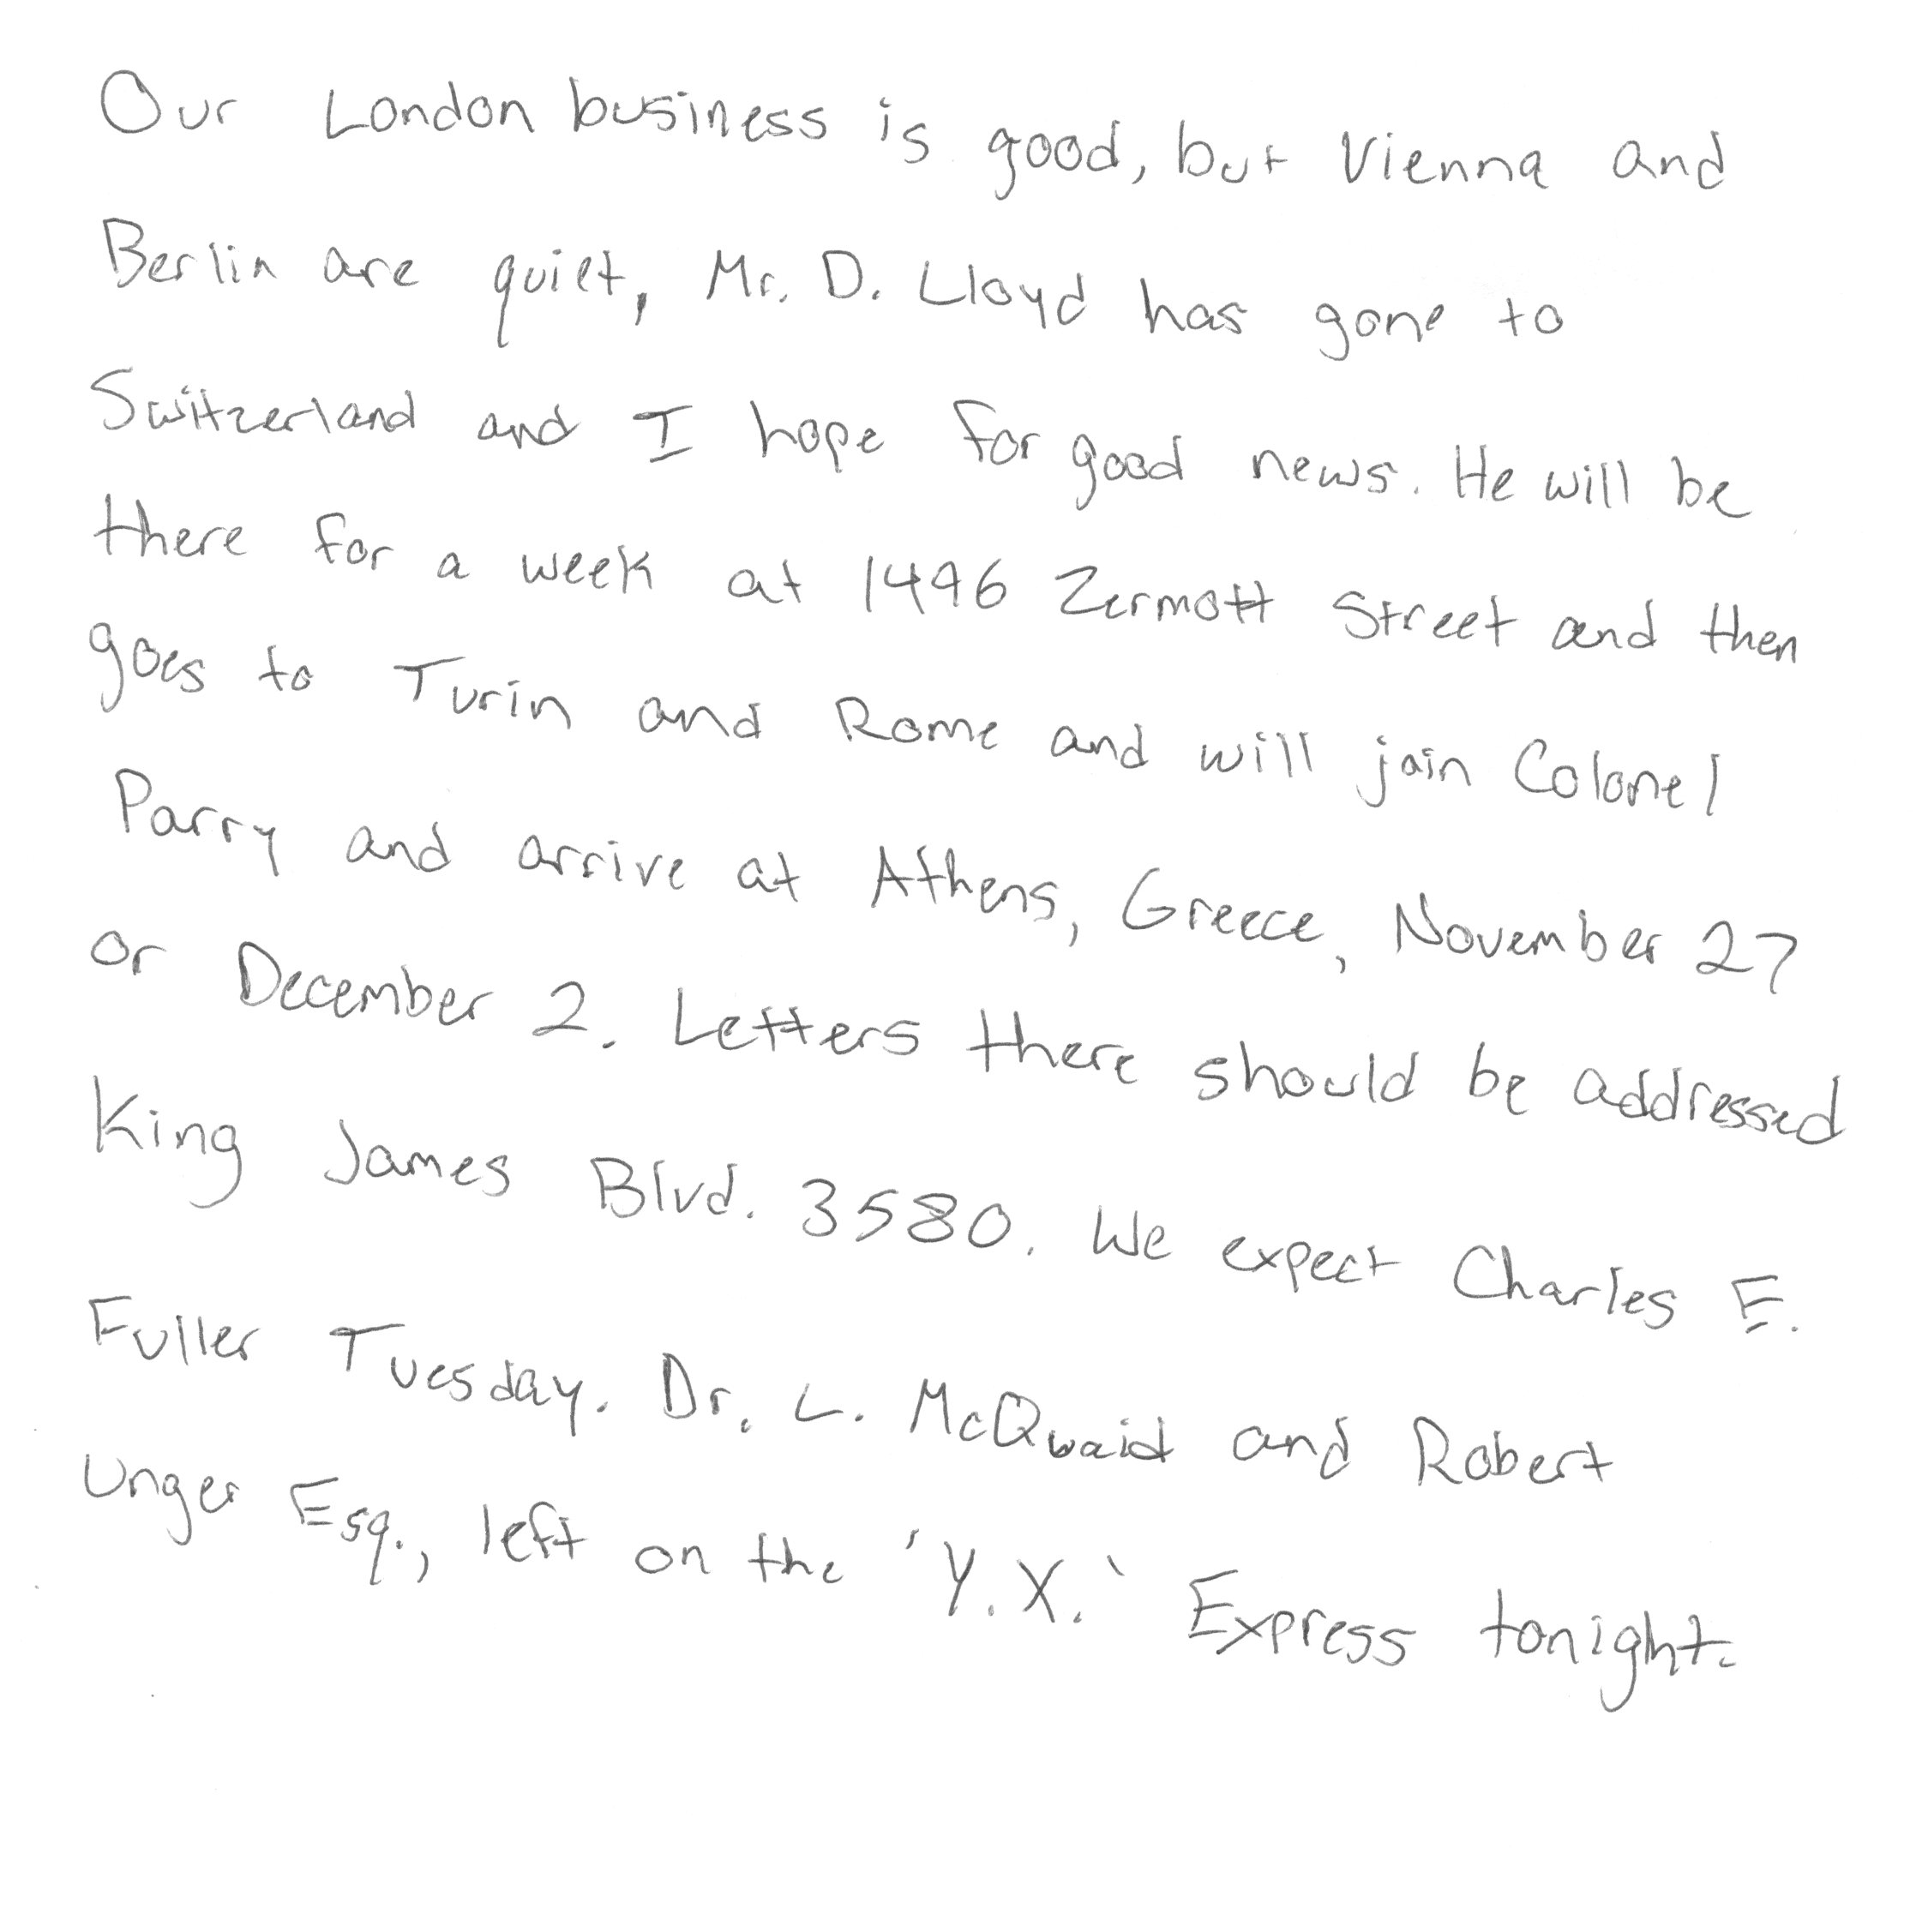 Our London business is good, but Vienna and
Berlin are quiet, Mr. D. Lloyd has gone to
Switzerland and I hope for good news. He will be
there for a week at 1496 Zermott Street and then
goes to Turin and Rome and will join Colonel
Parry and arrive at Athens, Greece, November 27
or December 2. Letters there should be addressed
King James Blvd. 3580. We expect Charles E.
Fuller Tuesday. Dr. L. McQuaid and Robert
Unger Esq., left on the 'Y.X.' Express tonight.